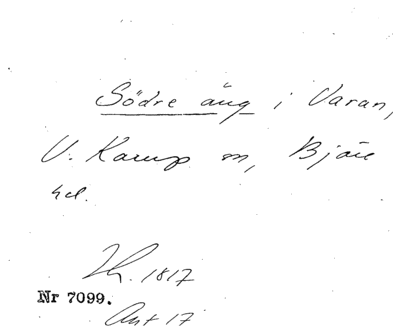 Södre äng i Varan,
V. Karup sn, Bjäre
hd.
Th. 1817
Nr 7099.
Ant 17